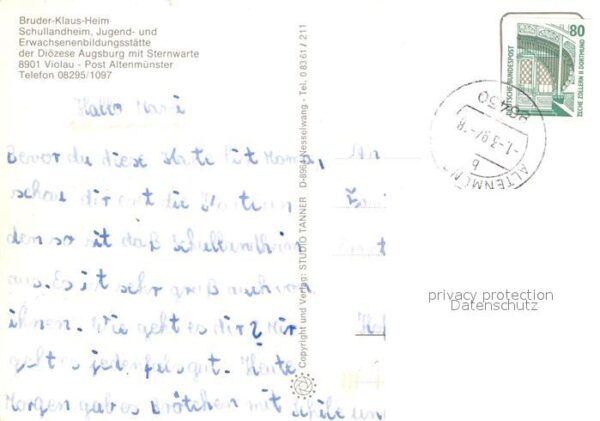 Bruder-Klaus-Heim
Schullandheim, Jugend- und
Erwachsenenbildungsstätte
der Diözese Augsburg mit Sternwarte
8901 Violau - Post Altenmünster
Telefon 08295/1097
Hallo Mami
Bevor du diese Karte list Mama,
schau dir erst die Karte an
den so sit daß Schullandheim
aus. Es ist sehr groß auch von
ihnen. Wie geht es dir? Mir
geht es jedenfals gut. Heute
Morgen gab es Brötchen mit
An
Copyright und Verlag: STUDIO TANNER D-8964 Nesselwang - Tel. 0 83 61 / 211
80
DEUTSCHE BUNDESPOST
ZECHE ZOLLERN II DORTMUND
86450
-1-3.97-18
b
ALTENMÜN
privacy protection
Datenschutz